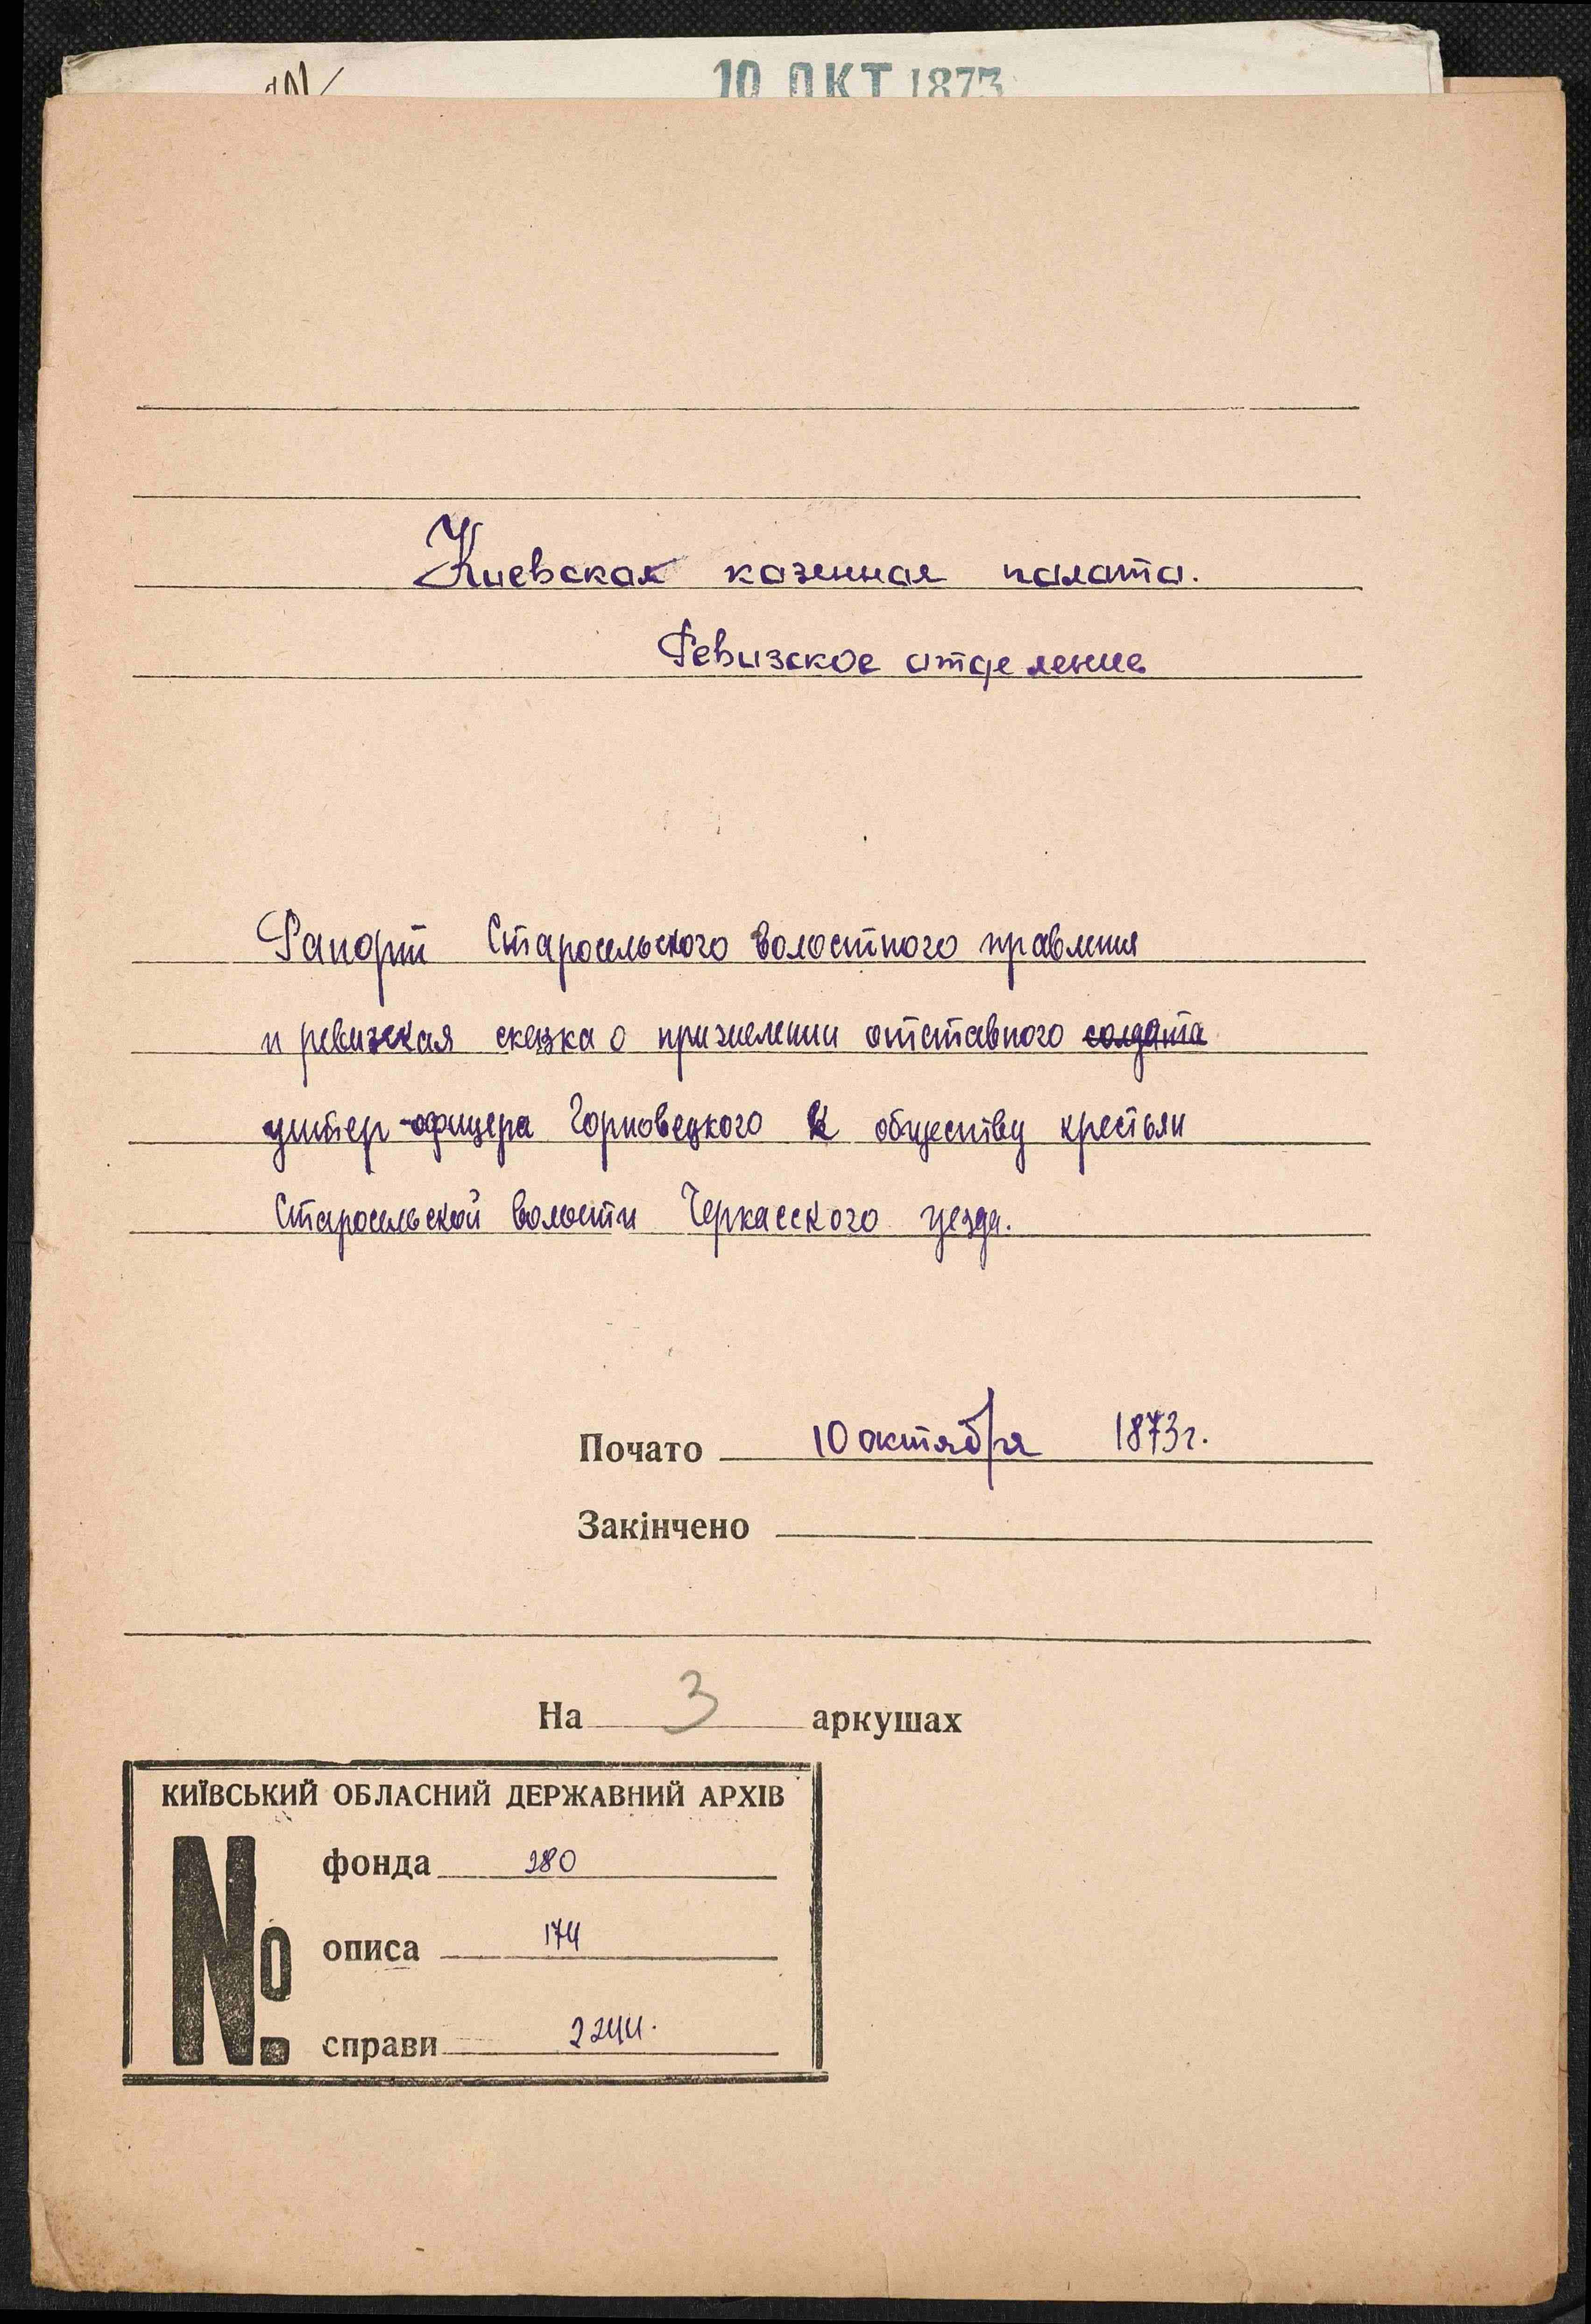 10 ОКТ 1873
Киевская казенная палата.
Ревизское отделение
Рапорт Старосельского волостного правления
и ревизская сказка о причислении отставного солдата
унтер-офицера Горновецкого к обществу крестьян
Старосельской волости Черкасского уезда.
Почато 10 октября 1873 г.
Закінчено
На 3 аркушах
КИЇВСЬКИЙ ОБЛАСНИЙ ДЕРЖАВНИЙ АРХІВ
№
фонда 280
описа 174
справи 2244.